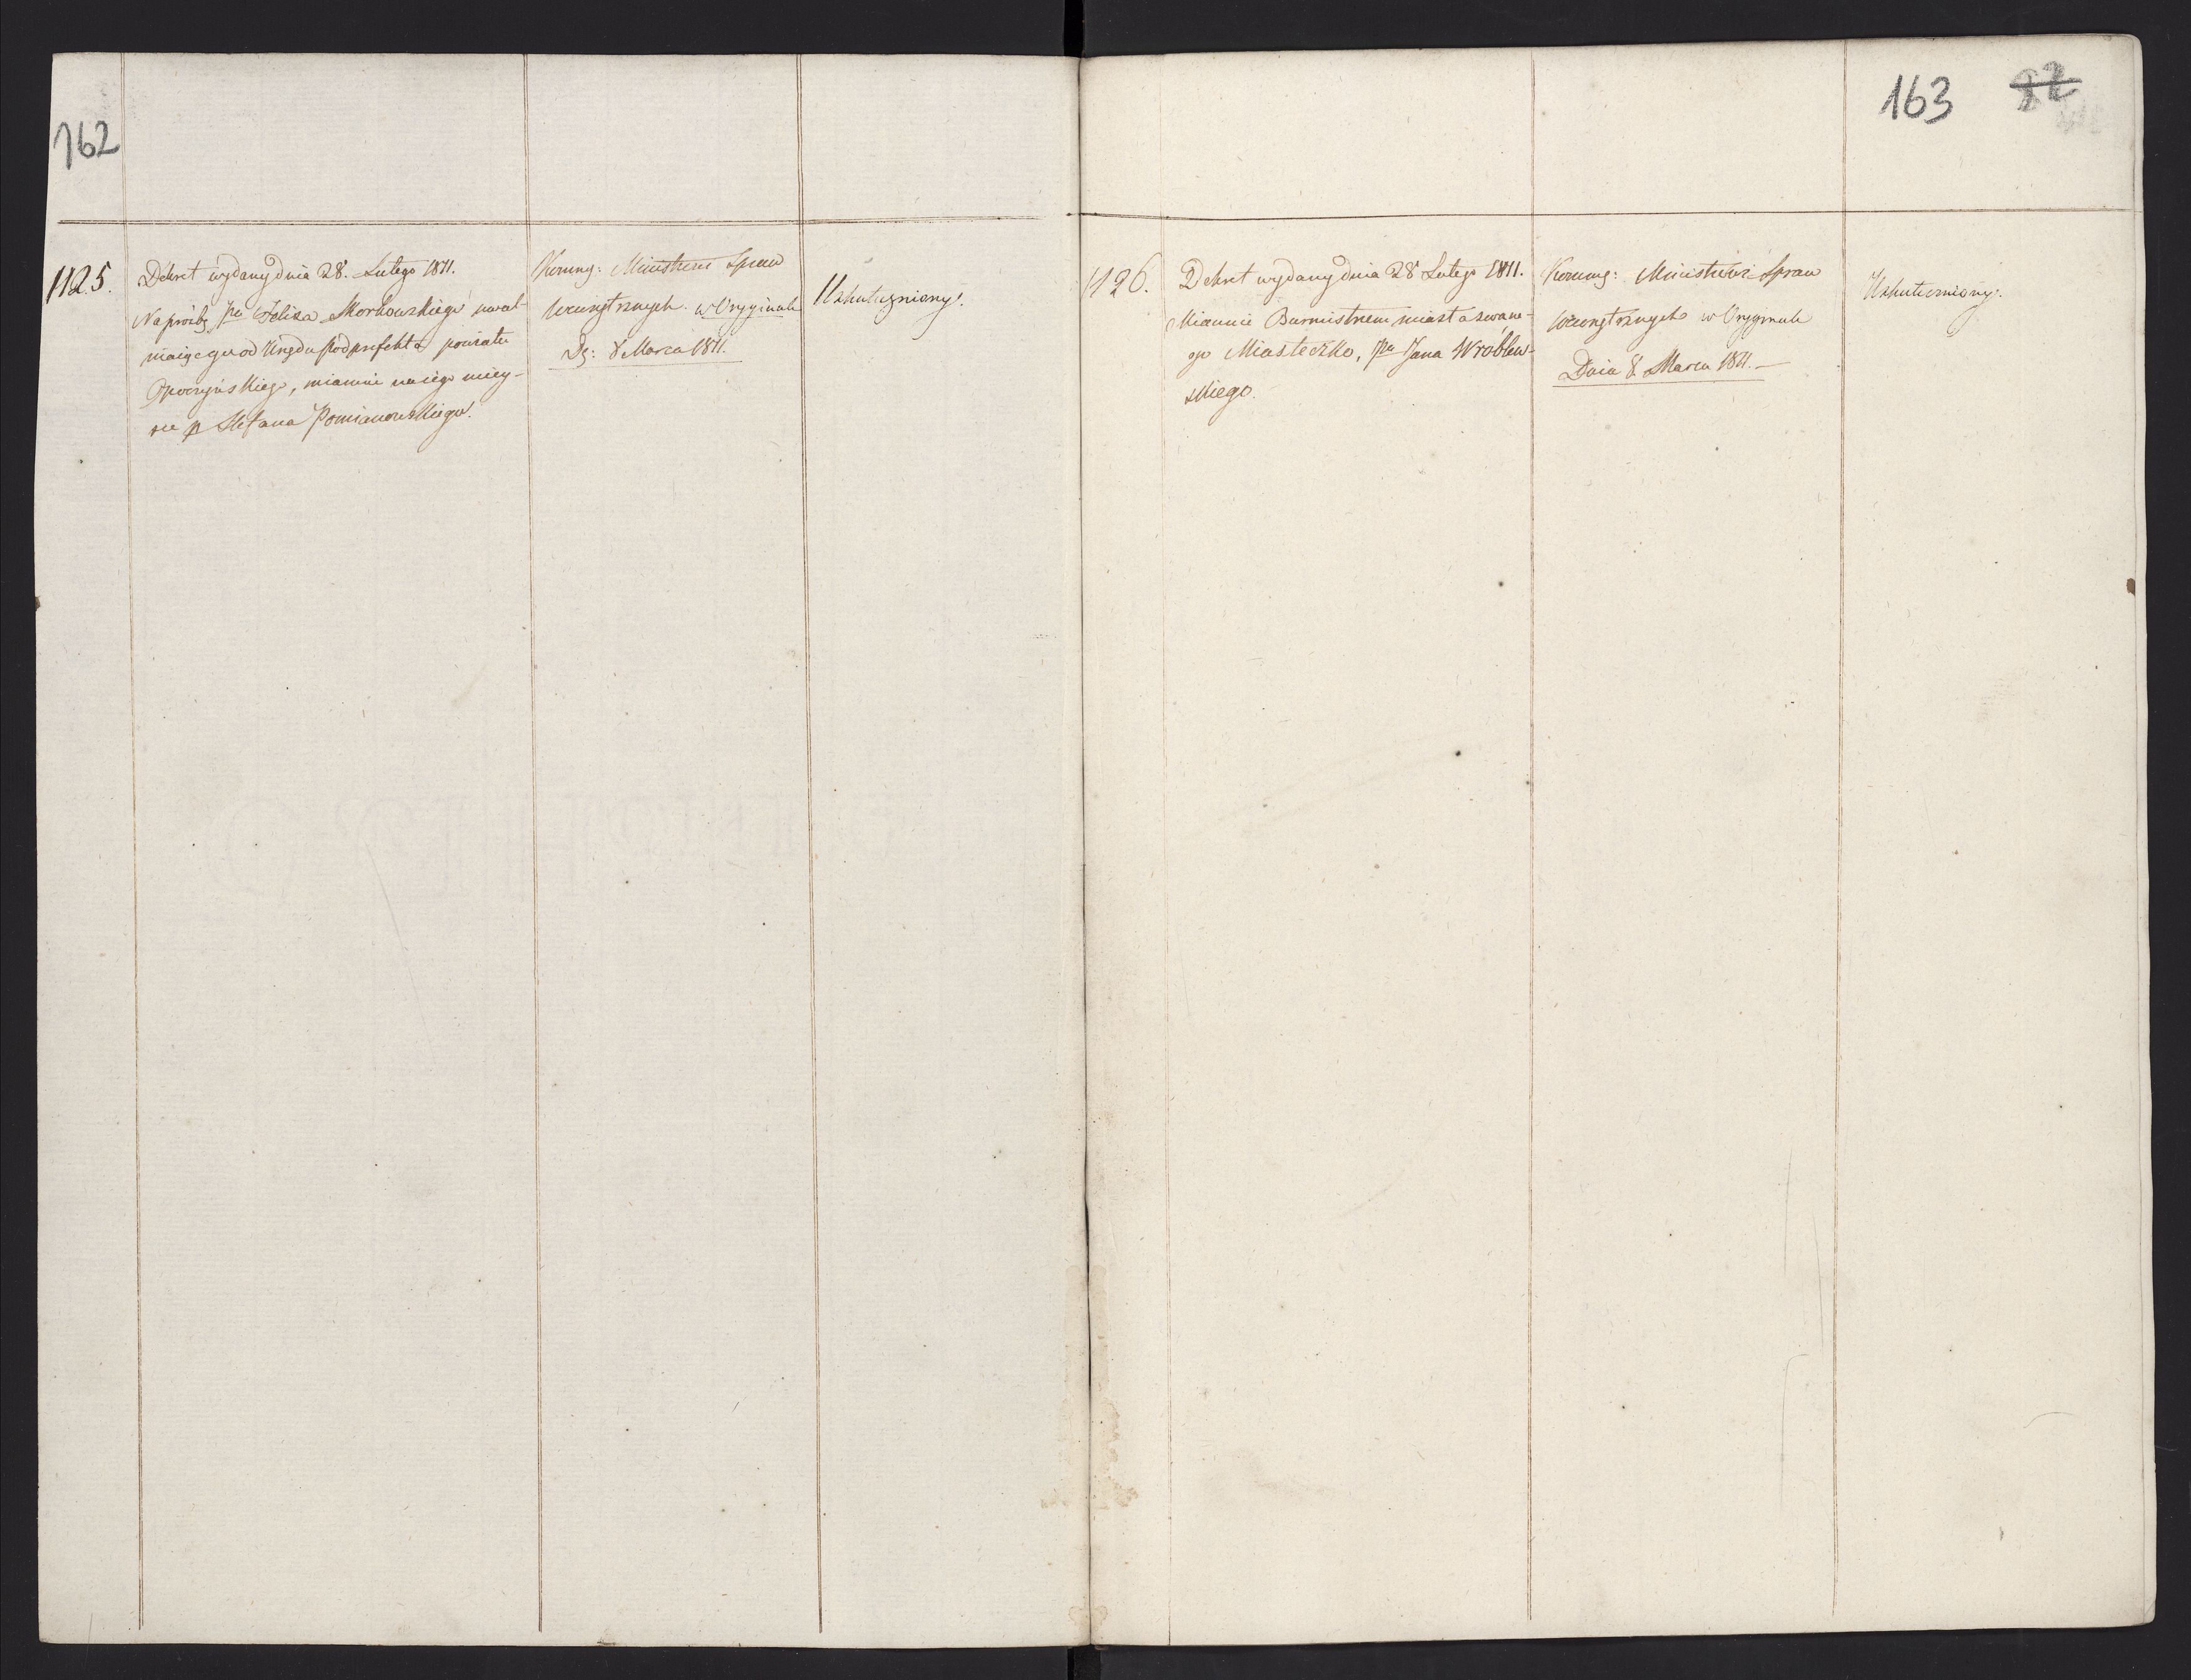 162
1125.
Dekret wydany dnia 28. Lutego 1811.
Na prośbę Pa Felixa Morkowskiego uwal-
niaiąc go od Urzędu Podprefekta powiatu
Opoczyńskiego, mianuie na iego miey-
sce P Stefana Pomianowskiego.
Kommg: Ministrowi Spraw
Wewnętrznych w Oryginale
D: 8 Marca 1811.
Uskuteczniony.
163 82
1126.
Dekret wydany dnia 28 Lutego 1811.
Mianuie Burmistrzem miasta zwane-
go Miasteczko, Pa Jana Wroblew-
skiego.
Kommg: Ministrowi Spraw
Wewnętrznych w Oryginale
Dnia 8. Marca 1811.—
Uskuteczniony.